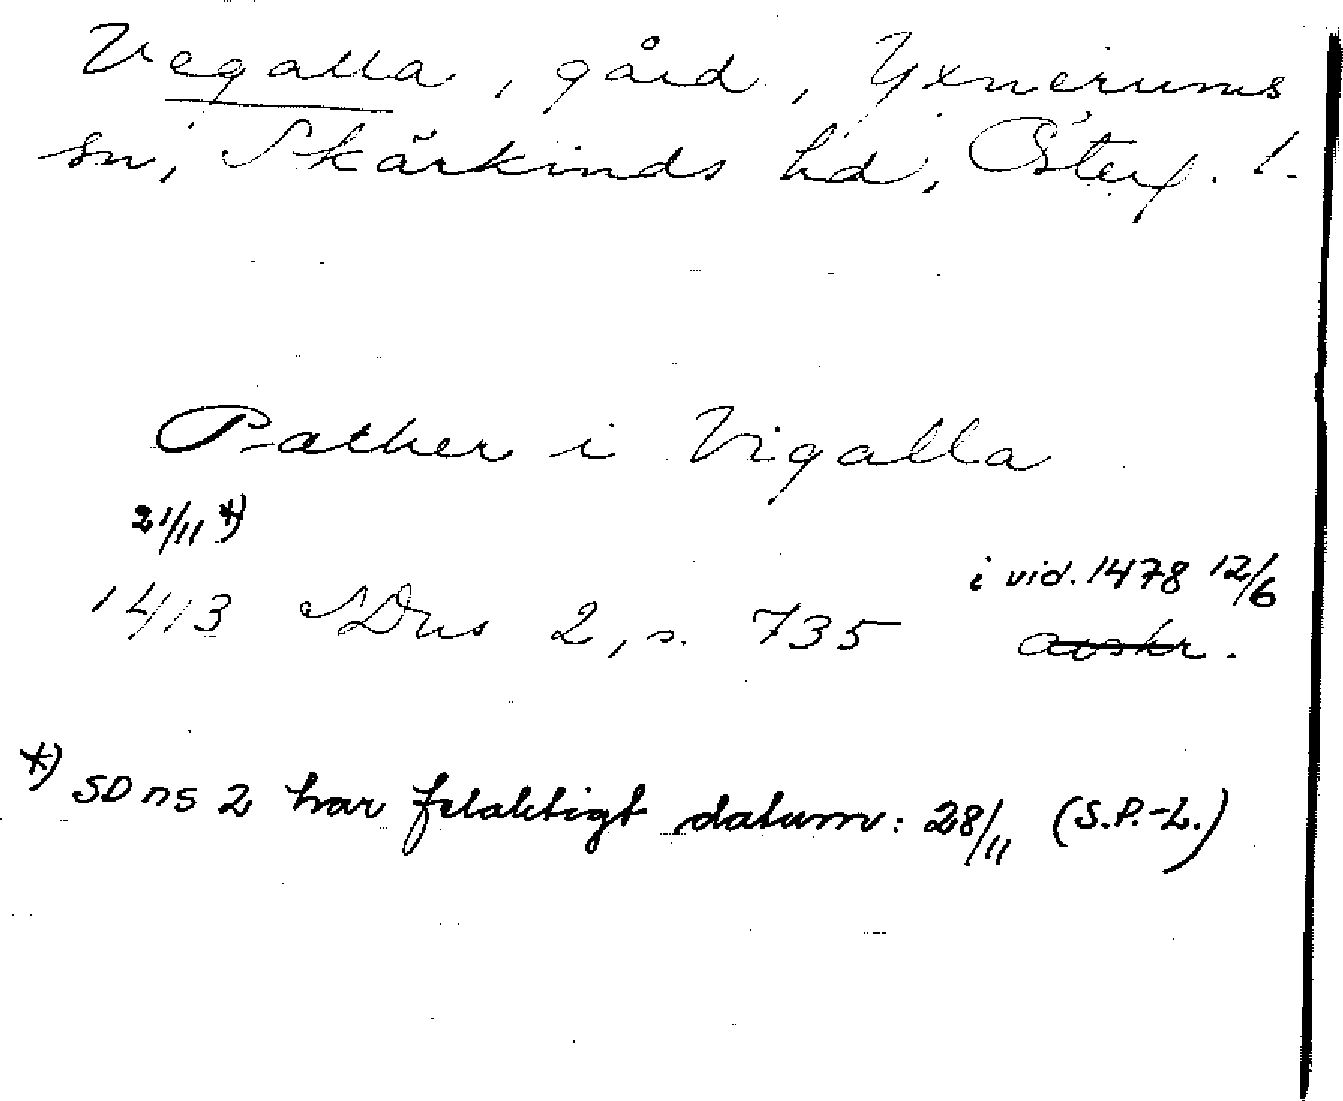 Vegalla, gård, Yxnerums
sn, Skärkinds hd, Österg. l.
Pather i Vigalla
21/11 *)
i vid. 1478 12/6
1413 SDns 2, s. 735 avskr.
*) SDns 2 har felaktigt datum: 28/11 (S.P.-L.)